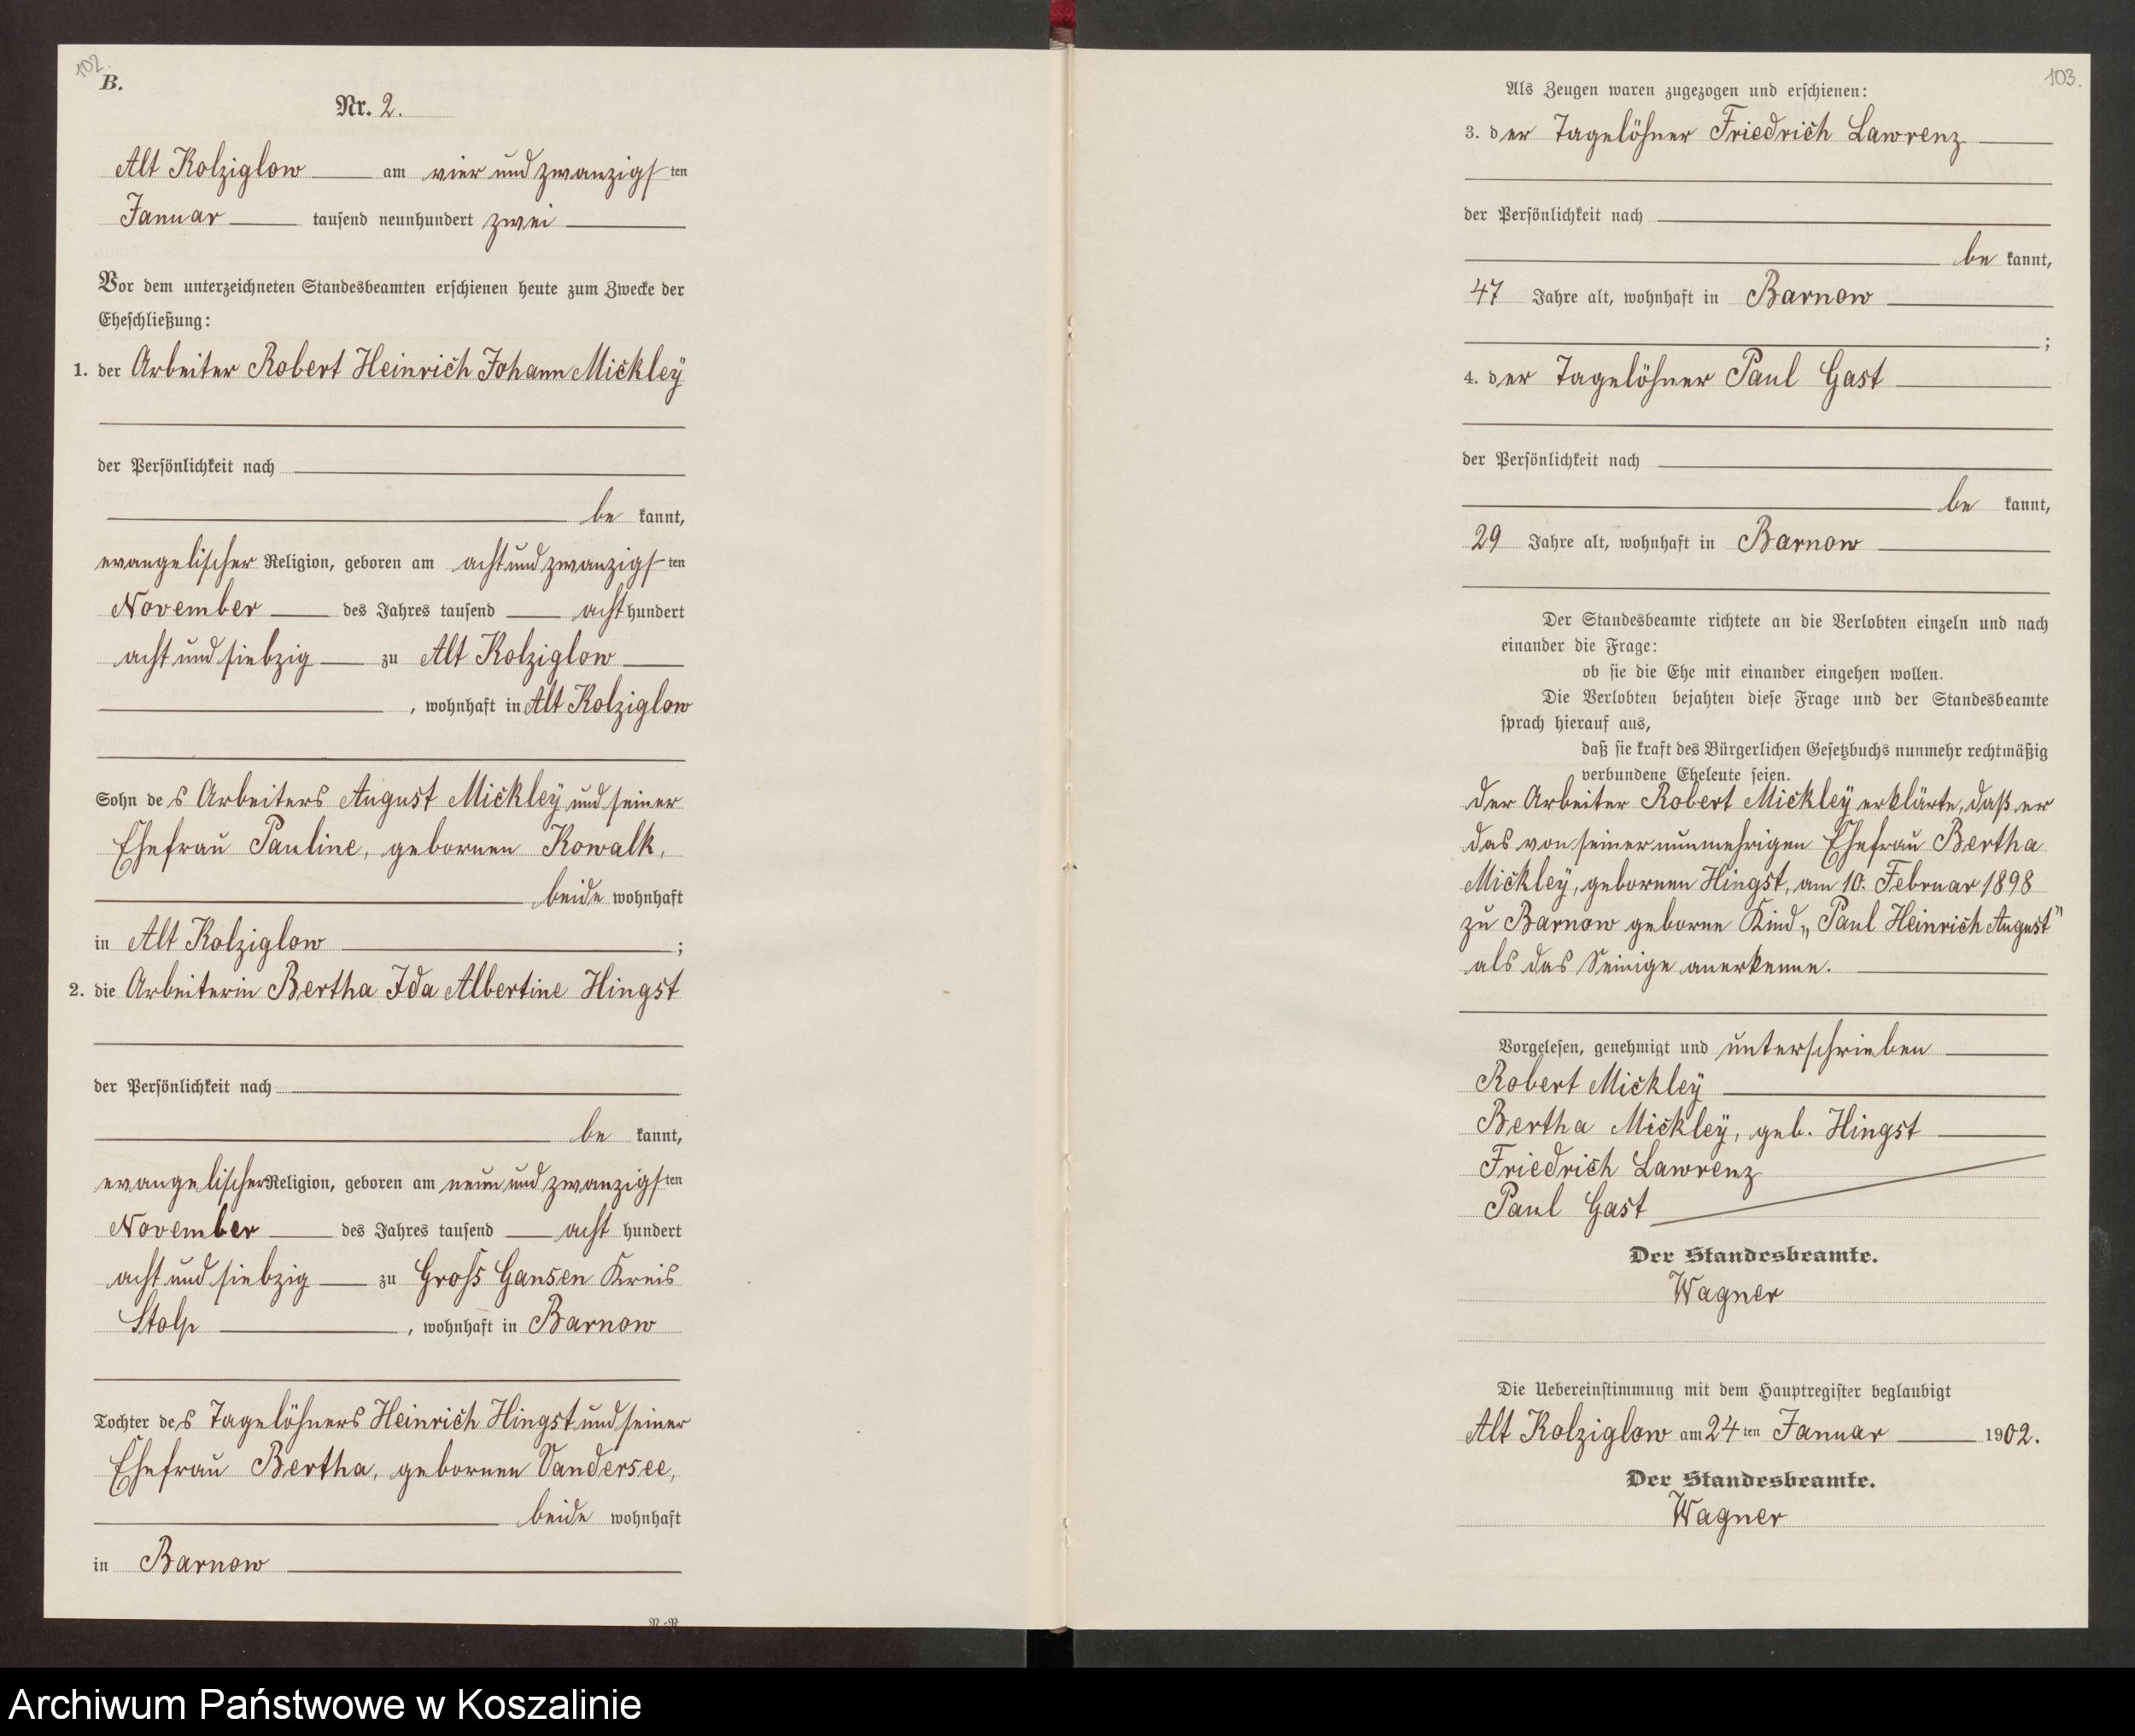 102.
B.
Nr. 2.
Alt Kolziglow am vier und zwanzigsten
Januar tausend neunhundert zwei
Vor dem unterzeichneten Standesbeamten erschienen heute zum Zwecke der
Eheschließung:
1. der Arbeiter Robert Heinrich Johann Mickley
der Persönlichkeit nach
be kannt,
evangelischer Religion, geboren am acht und zwanzigsten
November des Jahres tausend acht hundert
acht und siebzig zu Alt Kolziglow
, wohnhaft in Alt Kolziglow
Sohn des Arbeiters August Mickley und seiner
Ehefrau Pauline, gebornen Kowalk,
beide wohnhaft
in Alt Kolziglow ;
2. die Arbeiterin Bertha Ida Albertine Hingst
der Persönlichkeit nach
be kannt,
evangelischer Religion, geboren am neun und zwanzigsten
November des Jahres tausend acht hundert
acht und siebzig zu Gross Gansen Kreis
Stolp , wohnhaft in Barnow
Tochter des Tagelöhners Heinrich Hingst und seiner
Ehefrau Bertha, gebornen Sandersee,
beide wohnhaft
in Barnow
103.
Als Zeugen waren zugezogen und erschienen:
3. der Tagelöhner Friedrich Lawrenz
der Persönlichkeit nach
be kannt,
47 Jahre alt, wohnhaft in Barnow
;
4. der Tagelöhner Paul Gast
der Persönlichkeit nach
be kannt,
29 Jahre alt, wohnhaft in Barnow
Der Standesbeamte richtete an die Verlobten einzeln und nach
einander die Frage:
ob sie die Ehe mit einander eingehen wollen.
Die Verlobten bejahten diese Frage und der Standesbeamte
sprach hierauf aus,
daß sie kraft des Bürgerlichen Gesetzbuchs nunmehr rechtmäßig
verbundene Eheleute seien.
Der Arbeiter Robert Mickley erklärte, daß er
das von seiner nunmehrigen Ehefrau Bertha
Mickley, gebornen Hingst, am 10. Februar 1898
zu Barnow geborne Kind „Paul Heinrich August"
als das Seinige anerkenne.
Vorgelesen, genehmigt und unterschrieben
Robert Mickley
Bertha Mickley, geb. Hingst
Friedrich Lawrenz
Paul Gast
Der Standesbeamte.
Wagner
Die Uebereinstimmung mit dem Hauptregister beglaubigt
Alt Kolziglow am 24ten Januar 1902.
Der Standesbeamte.
Wagner
Archiwum Państwowe w Koszalinie